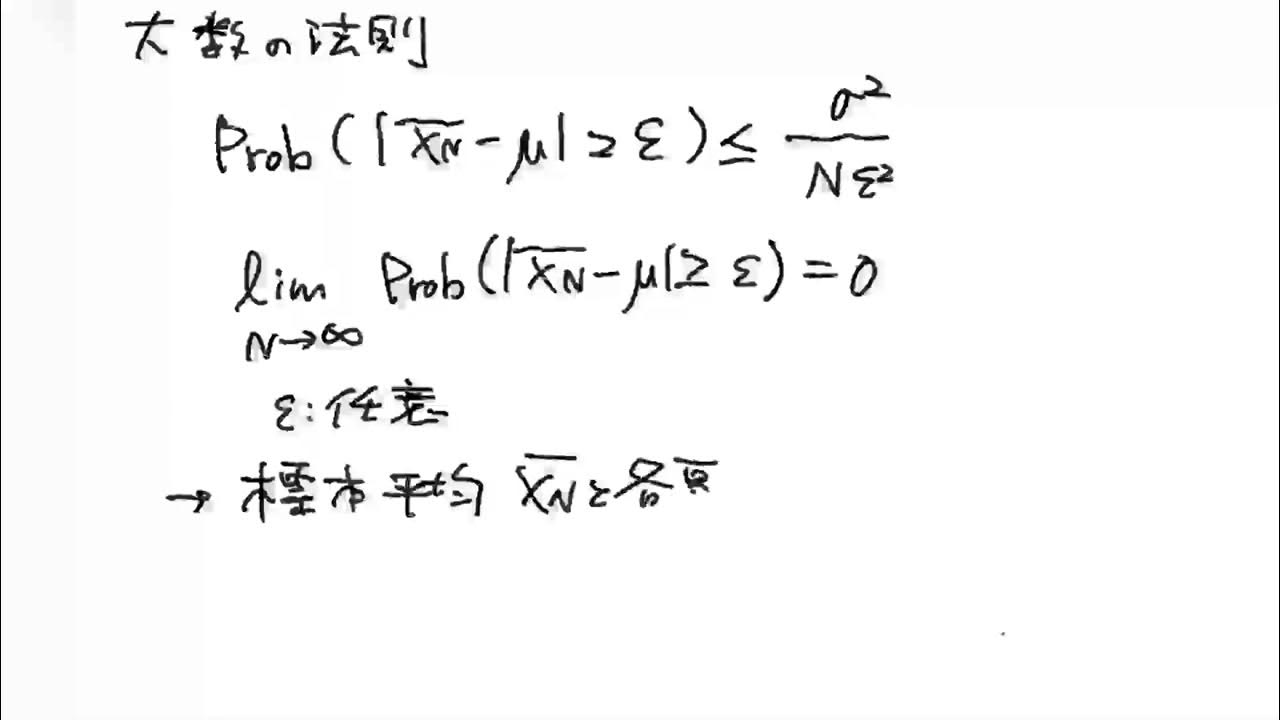 大数の法則
Prob(|X̄_N - μ| ≥ ε) ≤ σ²/(Nε²)
lim_{N→∞} Prob(|X̄_N - μ| ≥ ε) = 0
ε:任意
→ 標本平均 X̄_N と各